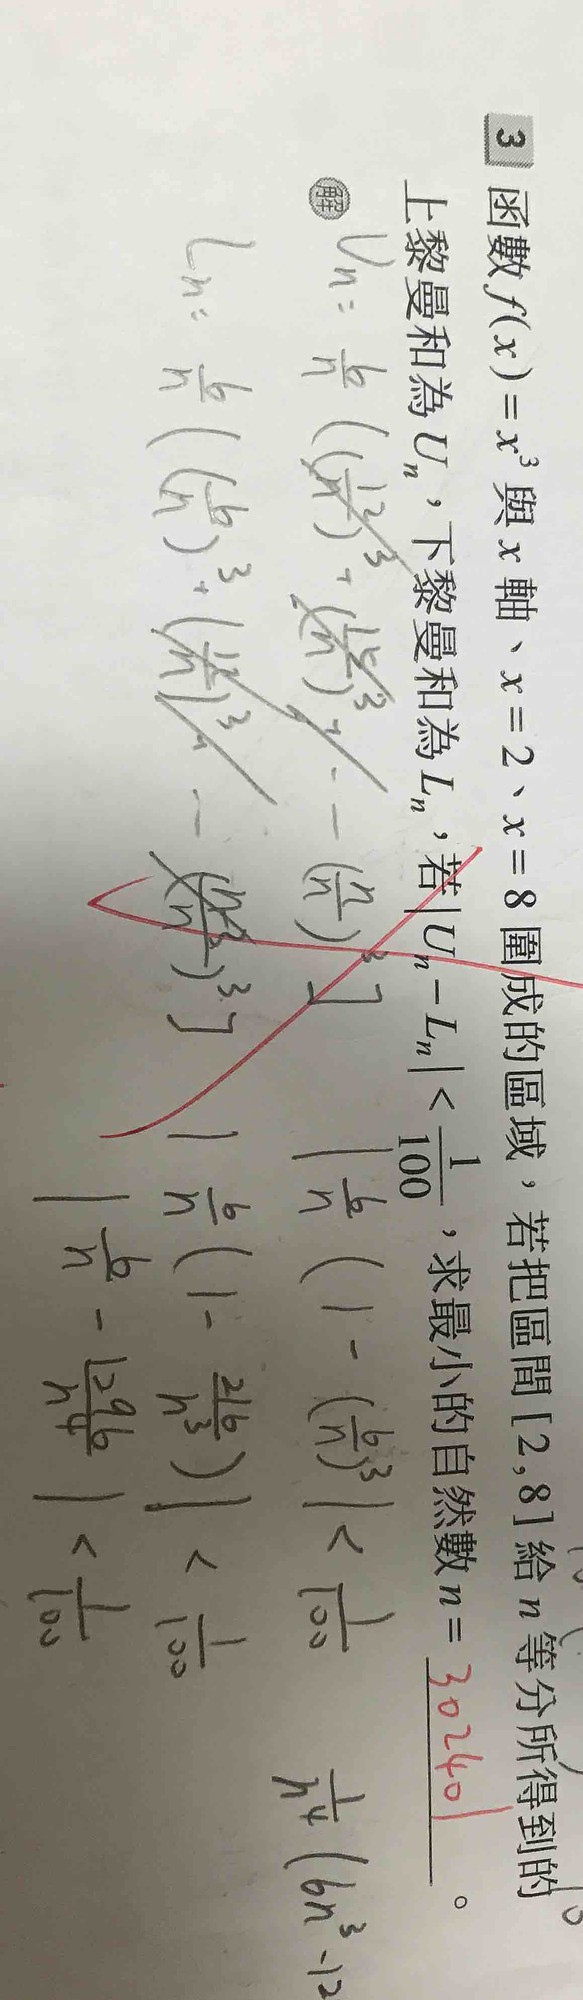 3 函數 f(x) = x³ 與 x 軸、x = 2、x = 8 圍成的區域，若把區間 [2,8] 給 n 等分所得到的
上黎曼和為 Uₙ，下黎曼和為 Lₙ，若 |Uₙ - Lₙ| < 1/100，求最小的自然數 n = 302401。
解 Uₙ = 6/n ((12/n)³ + ( )³ + ... (n/n)³]
|6/n (1 - (6/n)³| < 1/100
1/n⁴ (6n³ - 12
Lₙ = 6/n ((6/n)³ + (12/n)³ + ... ( )³]
|6/n (1 - 216/n³)| < 1/100
|6/n - 1296/n⁴| < 1/100